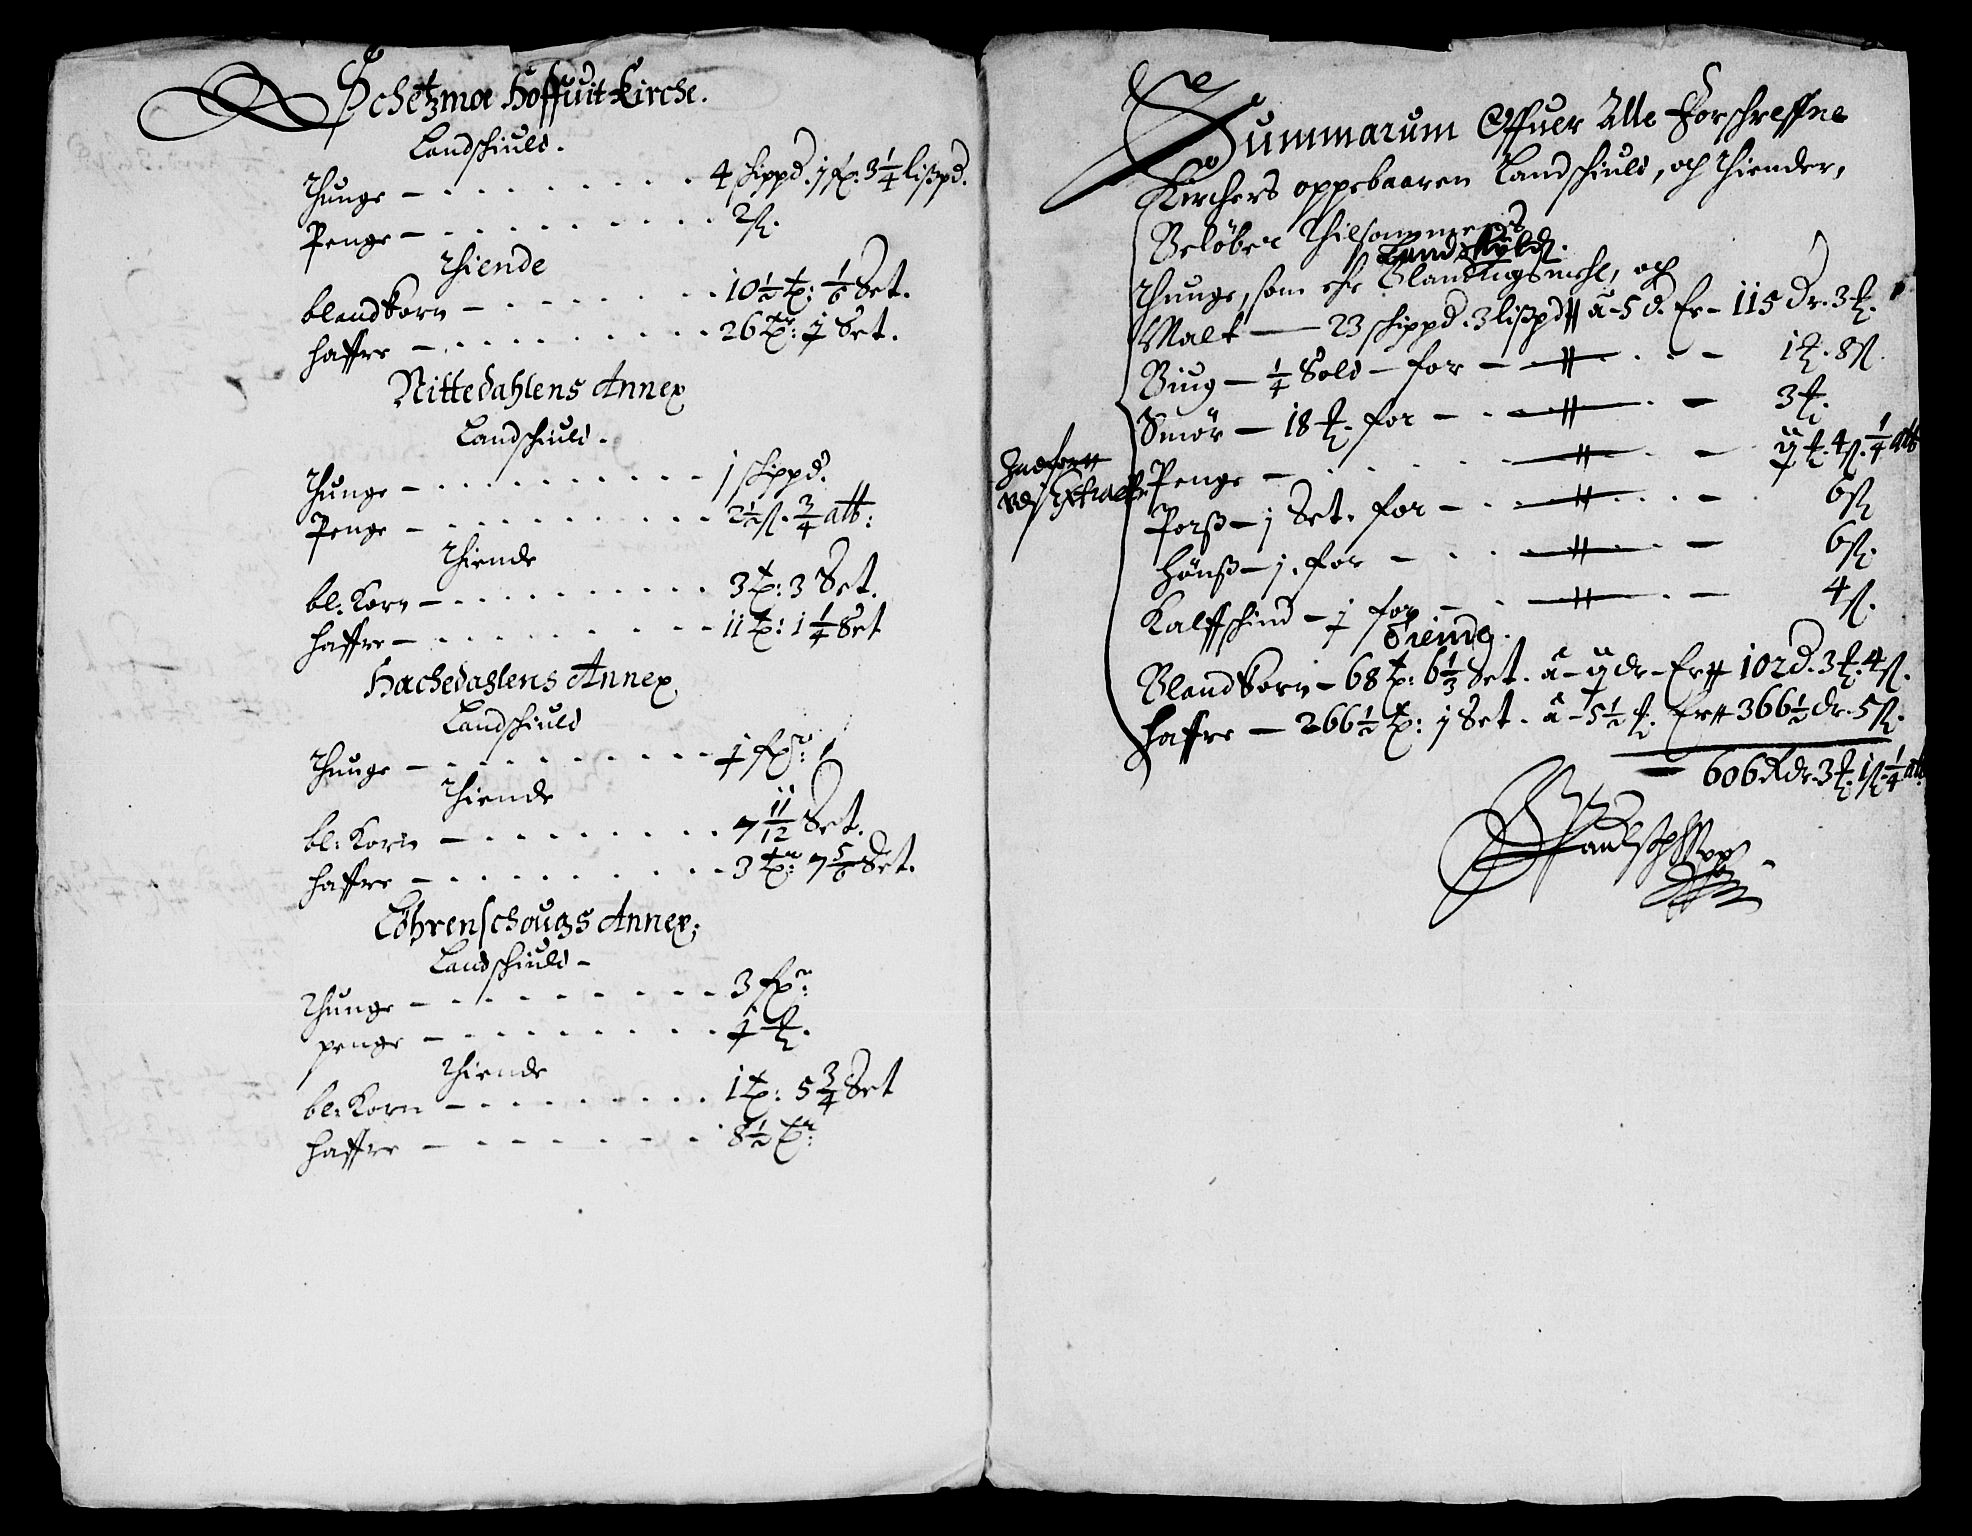 Schetzmoe Hoffuit Kirche.
Landschiuld.
Thunge – 4 schippd. j fx. 3¼ lißpd.
Penge – 2 ß.
Thiende
blandkorn – 10½ tr: ⅙ Set.
haffre – 26 tr: j Set.
Nittedahlens Annex
Landschiuld.
Thunge – j schippd.
Penge – 2½ ß. ¾ alb:
Thiende
bl: Korn – 3 tr: 3 Set.
haffre – 11 tr: 1¼ Set
Hachedahlens Annex
Landschiuld
Thunge – j fxr:
Thiende
bl: Korn – 7 11/12 Set.
haffre – 3 tr: 7⅚ Set.
Löhrenschougs Annex;
Landschiuld –
Thunge – 3 fxr:
penge – j ₰.
Thiende
bl: Korn – 1 tr: 5¾ Set
haffre – 8½ tr:
Summarum Offuer Alle Forschreffne
Kirchers oppebaaren Landschiuld, och Thiender,
Beløber Thilsammens
Landskyld.
Thunge, som ehr Blandingsmehl, och
Malt – 23 schippd. 3 lißpd â – 5 d. Er – 115 dr. 3 ₰.
Biug – ¼ Sold – for – 1 ₰. 8 ß.
Smör – 18 ₰. for – 3 ₰.
Penge – ij ₰. 4 ß. ¼ alb
Porß – j Set. for – 6 ß
Hönß – j. for – 6 ß.
Kalffschind – j for – 4 ß.
Tiende.
Blandkorn – 68 tr: 6⅓ Set. â – ij dr – Er 102 d. 3 ₰. 4 ß.
haffre – 266½ tr: j Set. â – 5½ ₰. Er 366½ dr. 5 ß.
606 Rdr. 3 ₰. 1 ß. ¼ alb